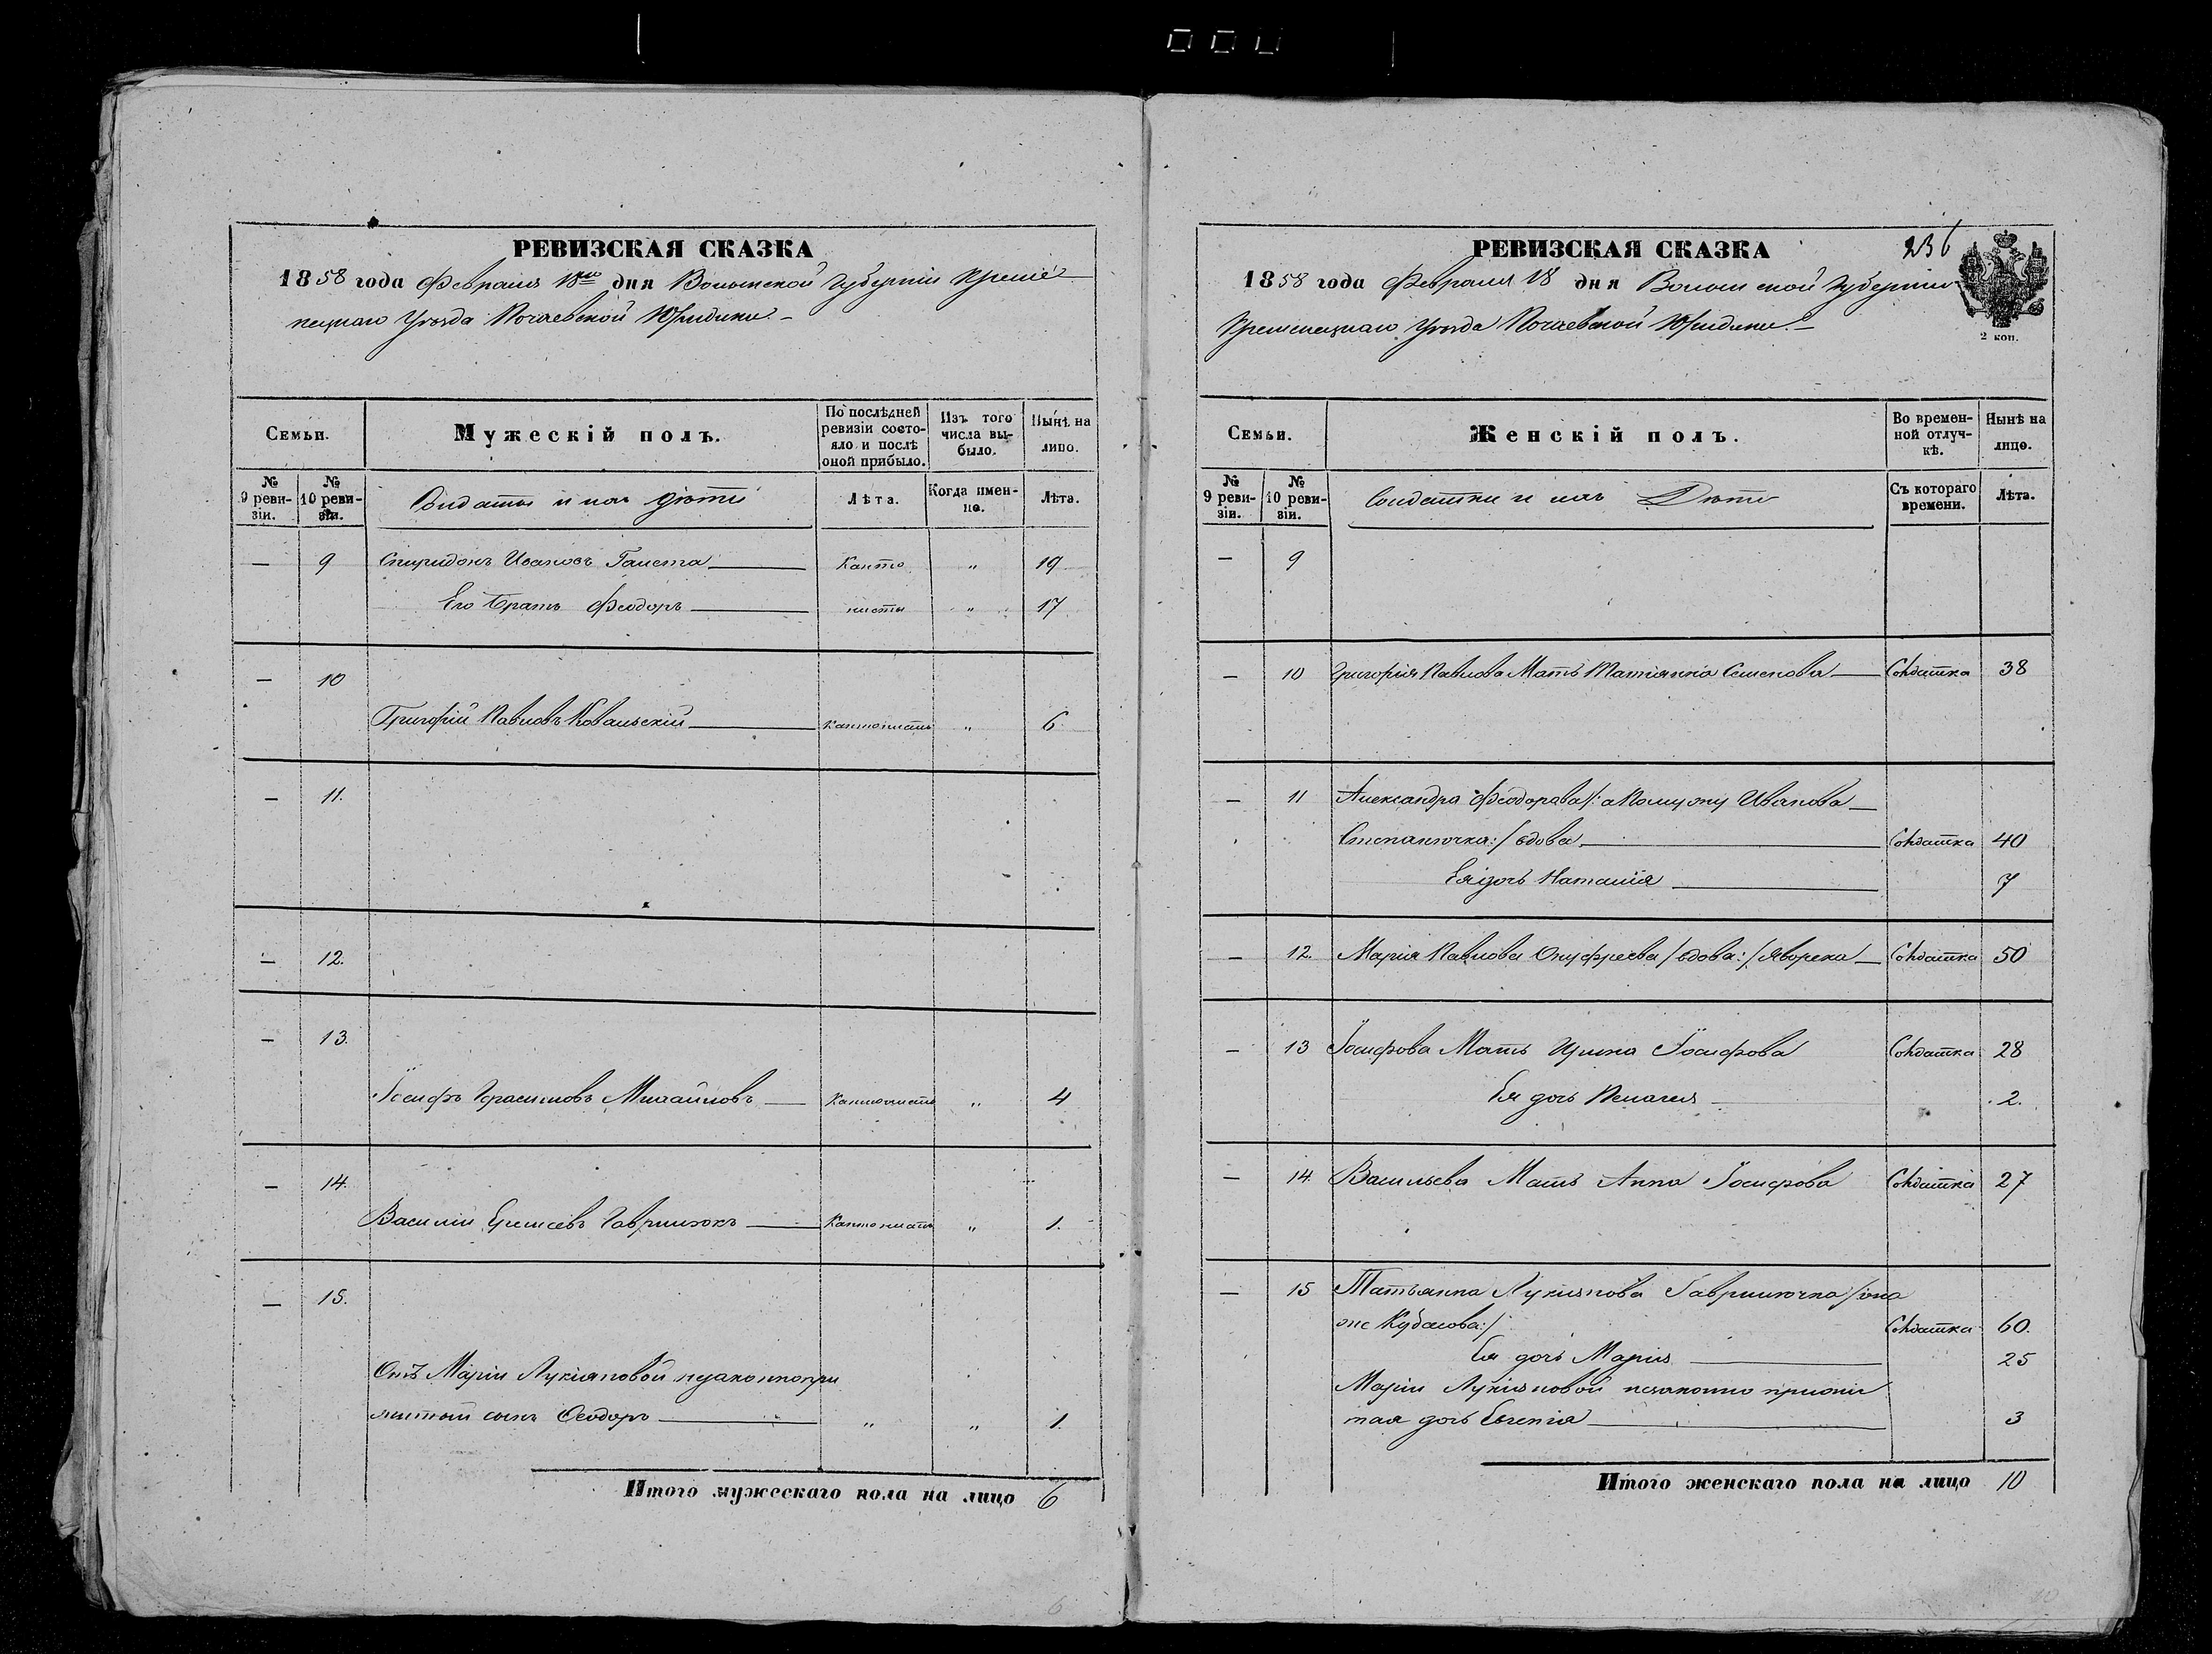 РЕВИЗСКАЯ СКАЗКА
1858 года Февраля 18го дня Волынской Губерніи Кремѣ
нецкаго Уѣзда Почаевской Юридики
Семьи.
Мужескій полъ.
По послѣдней ревизіи состояло и послѣ оной прибыло.
Изъ того числа выбыло.
Нынѣ на лицо.
№ 9 ревизіи.
№ 10 ревизіи.
Солдаты и ихъ дѣти
Лѣта.
Когда именно.
Лѣта.
— 9 Спиридонъ Ивановъ Галета Канто " 19
Его братъ Феодоръ нисты " 17
— 10
Григорій Павловъ Ковальскій Кантонистъ " 6
— 11.
— 12.
— 13.
Іосифъ Герасимовъ Михайловъ Кантонистъ " 4
— 14.
Василій Елисеевъ Гаврилюкъ Кантонистъ " 1.
— 15.
Отъ Маріи Лукіяновой незаконнопри
житый сынъ Феодоръ " " 1.
Итого мужескаго пола на лицо 6
РЕВИЗСКАЯ СКАЗКА
236
1858 года Февраля 18 дня Волынской Губерніи
Кременецкаго Уѣзда Почаевской Юридики
2 коп.
Семьи.
Женскій полъ.
Во временной отлучкѣ.
Нынѣ на лицо.
№ 9 ревизіи.
№ 10 ревизіи.
Солдатки и ихъ Дѣти
Съ котораго времени.
Лѣта.
— 9
— 10 Григорія Павлова Мать Матіянна Семенова Солдатка 38
— 11 Александра Феодорова /: а по мужу Иванова
Степанючка :/ вдова Солдатка 40
Ея дочь Наталія 7
— 12. Марія Павлова Онуфреева / вдова :/ Яворска Солдатка 50
— 13 Іосифова Мать Ирина Іосифова Солдатка 28
Ея дочь Пелагея 2.
— 14. Васильева Мать Анна Іосифова Солдатка 27
— 15 Татьянна Лукіянова Гаврилючка / она
же Кубасова :/ Солдатка 60.
Ея дочь Марія 25
Маріи Лукіяновой незаконно прижи
тая дочь Евгенія 3
Итого женскаго пола на лицо 10